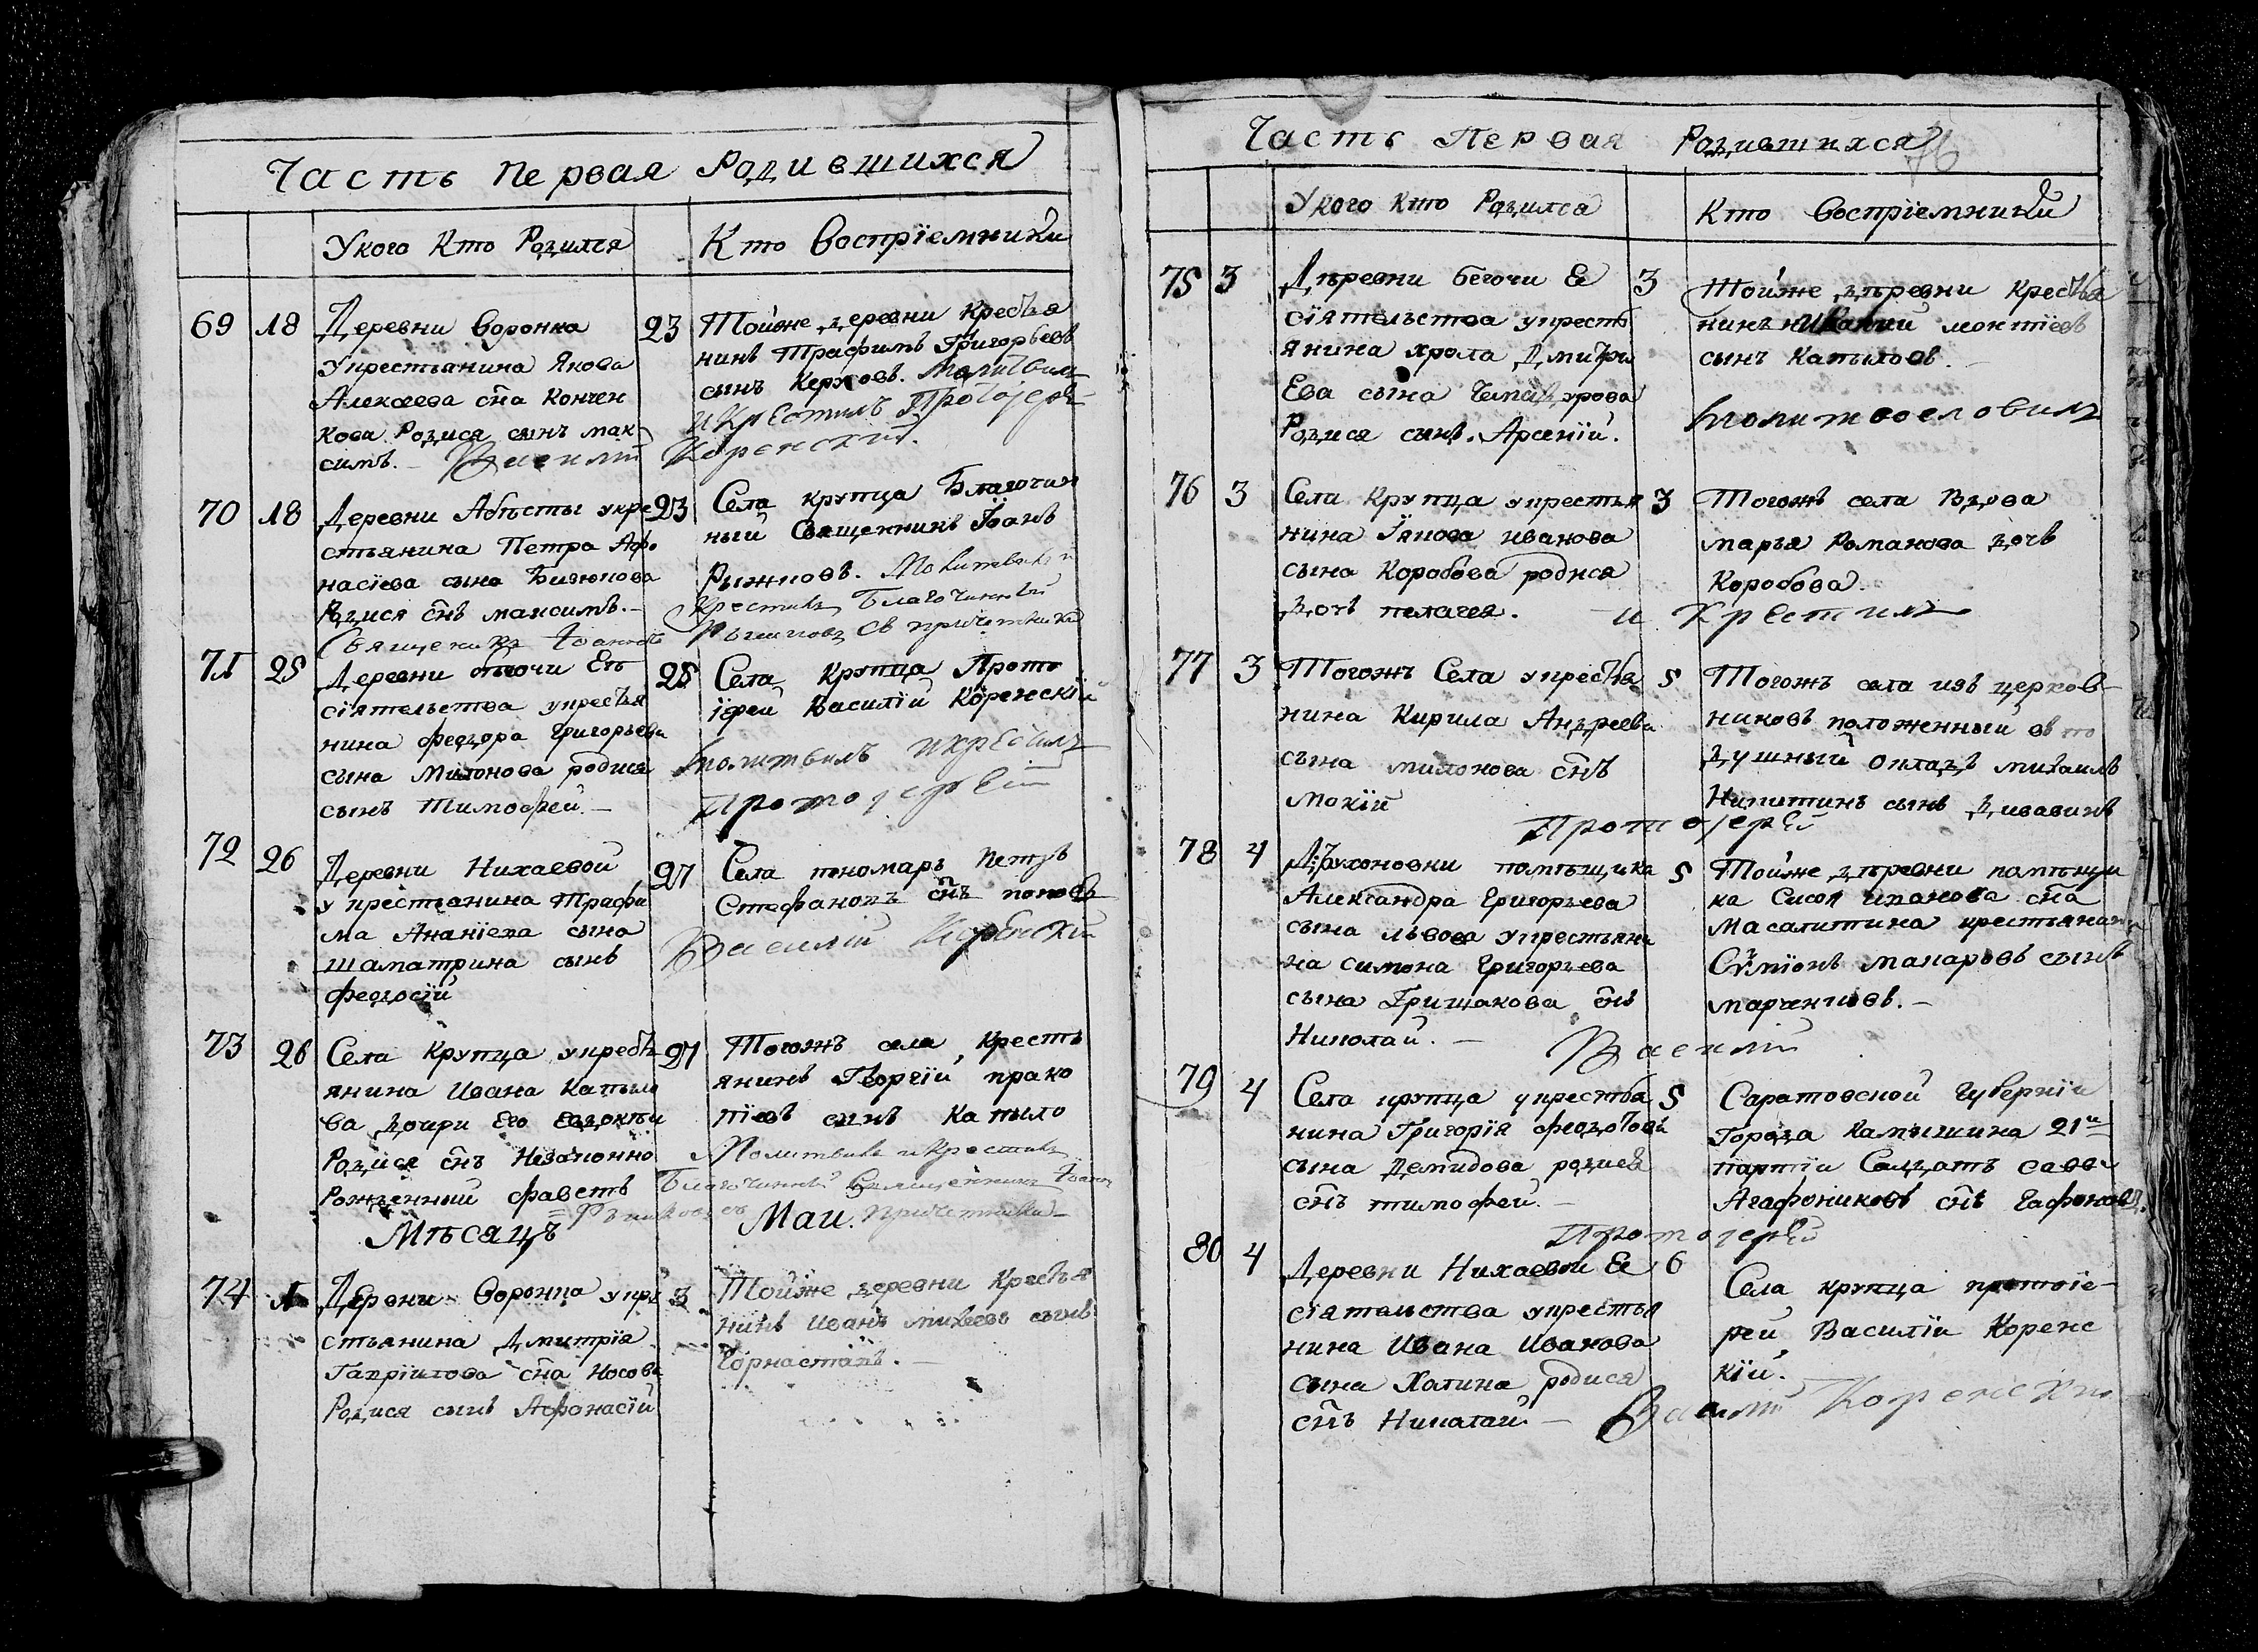 Часть Первая Родившихся
Укого Кто Родился
Кто Воспріемники
69 18 Деревни Воронка
Укрестьянина Якова
Алексеева сна Кончен
кова Родися сынъ мак
симъ.
23 Тойже деревни Кресья
нинъ Трафимъ Григорьевъ
сынъ Керховъ. Молитвилъ
икрестилъ Протоіерей
Василій Коренскій.
70 18 Деревни Обѣсты укре
стьянина Петра Афо
насіева сына Бизюкова
Родися снъ максимъ.
23 Села крупца Благочин
ный Священникъ Іоанъ
Рыжковъ. Молитвилъ и
крестилъ Благочинный
Священикъ Іоаннъ Рышковъ съ причетники
71 25 Деревни бегочи Ея
сіятельства укресья
нина федора Григорьева
сына Милонова родися
сынъ Тимофей.
25 Села Крупца Прото
іерей Василій Коренскій
молитвилъ икрестилъ
Протоіерей
72 26 Деревни Нихаевой
укрестьянина Трафи
ма Ананіева сына
Шаматрина сынъ
феодосій
27 Села пономарь Петръ
Стефановъ снъ поповъ
Василій Коренскій
73 26 Села Крупца укресть
янина Ивана Катыло
ва дочри Его Евдокіи
Родися снъ Незаконно
Рожденный фавстъ
27 Тогожъ села Кресть
янинъ Георгій прако
піевъ сынъ Катыло
Молитвилъ икрестилъ
Благочинный Священникъ Іоаннъ
Рышковъ съ причетники
Мѣсяцъ Маи.
74 1 Деревни Воронка укре
стьянина Дмитрія
Гавріилова сна Носова
Родися сынъ Афонасій
3 Тойже деревни Кресья
нинъ Иванъ михеевъ сынъ
Горнастаевъ.
Часть Первая Родившихся 76
Укого Кто Родился
Кто Воспріемники
75 3 Дѣревни бегочи Ея
сіятельства укресть
янина хрола Дмитри
Ева сына Чемадурова
Родися сынъ. Арсеній.
3 Тойже дѣревни кресья
нинъ
сынъ Катыловъ.
молитвословилъ
76 3 Села Крупца укрестья
нина Іякова иванова
сына Коробова родися
дочь пелагея.
3 Тогожъ села Вдова
марья Романова дочь
Коробова.
и Крестилъ
77 3 Тогожъ Села укресья
нина Кирила Андреева
сына милонова снъ
мокій
5 Тогожъ села изъ церков
никовъ положенный въ по
душный окладъ михаилъ
Никитинъ сынъ Дивавинъ
Протоіерей
78 4 помѣщика
Александра Григорьева
сына львова укрестьяни
на симона Григорьева
сына Гришакова снъ
Николай.
5 Тойже дѣревни памѣщи
ка Сисоя иванова сна
Масалитина крестьянинъ
Сумионъ макаровъ сынъ
марченковъ.
Василій
79 4 Села крупца укрестья
нина Григорія федотова
сына Демидова родися
снъ тимофей.
5 Саратовской Губерніи
Города Камышина 21й
партіи Салдатъ савва
Агафониковъ снъ Гафоновъ.
Протоіерей
80 4 Деревни Нихаевой Ея
сіятельства укрестья
нина Ивана Иванова
сына Халина родися
снъ Николай.
6 Села крупца протоіе
рей Василій Коренс
кій.
Василій Коренскій